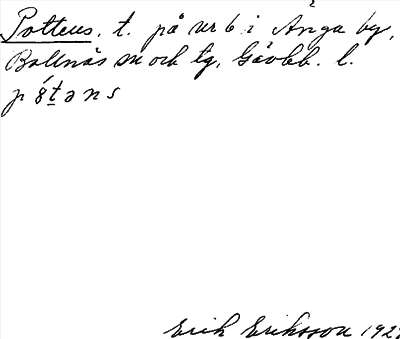 Pottens, t. på nr 6 i Änga by,
Bollnäs sn och tg, Gävleb. l.
Erik Eriksson